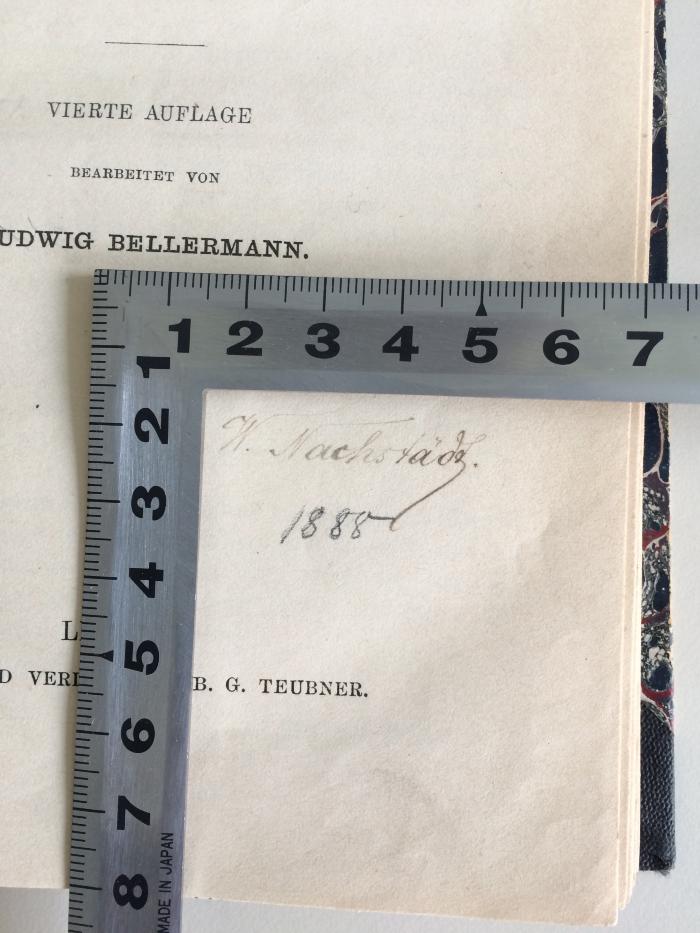 VIERTE AUFLAGE
BEARBEITET VON
UDWIG BELLERMANN.
1 2 3 4 5 6 7
1
2
3
4
5
6
7
8
MADE IN JAPAN
W. Nachstädt.
1888
L
D VERL B. G. TEUBNER.